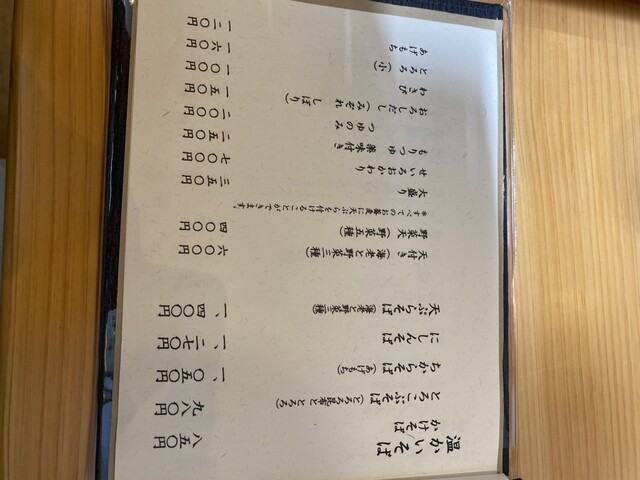 温かいそば
かけそば 八五〇円
とろこぶそば（とろろ昆布ととろろ） 九八〇円
ちからそば（あげもち） 一、〇五〇円
にしんそば 一、二七〇円
天ぷらそば（海老と野菜三種） 一、四〇〇円
天付き（海老と野菜三種） 六〇〇円
野菜天（野菜五種） 四〇〇円
＊すべてのお蕎麦に天ぷらを付けることができます。
大盛り 三五〇円
せいろおかわり 七〇〇円
もりつゆ 薬味付き 二五〇円
つゆのみ 二〇〇円
おろしだし（みぞれ しぼり） 一五〇円
わさび 一〇〇円
とろろ（小） 一六〇円
あげもち 一二〇円